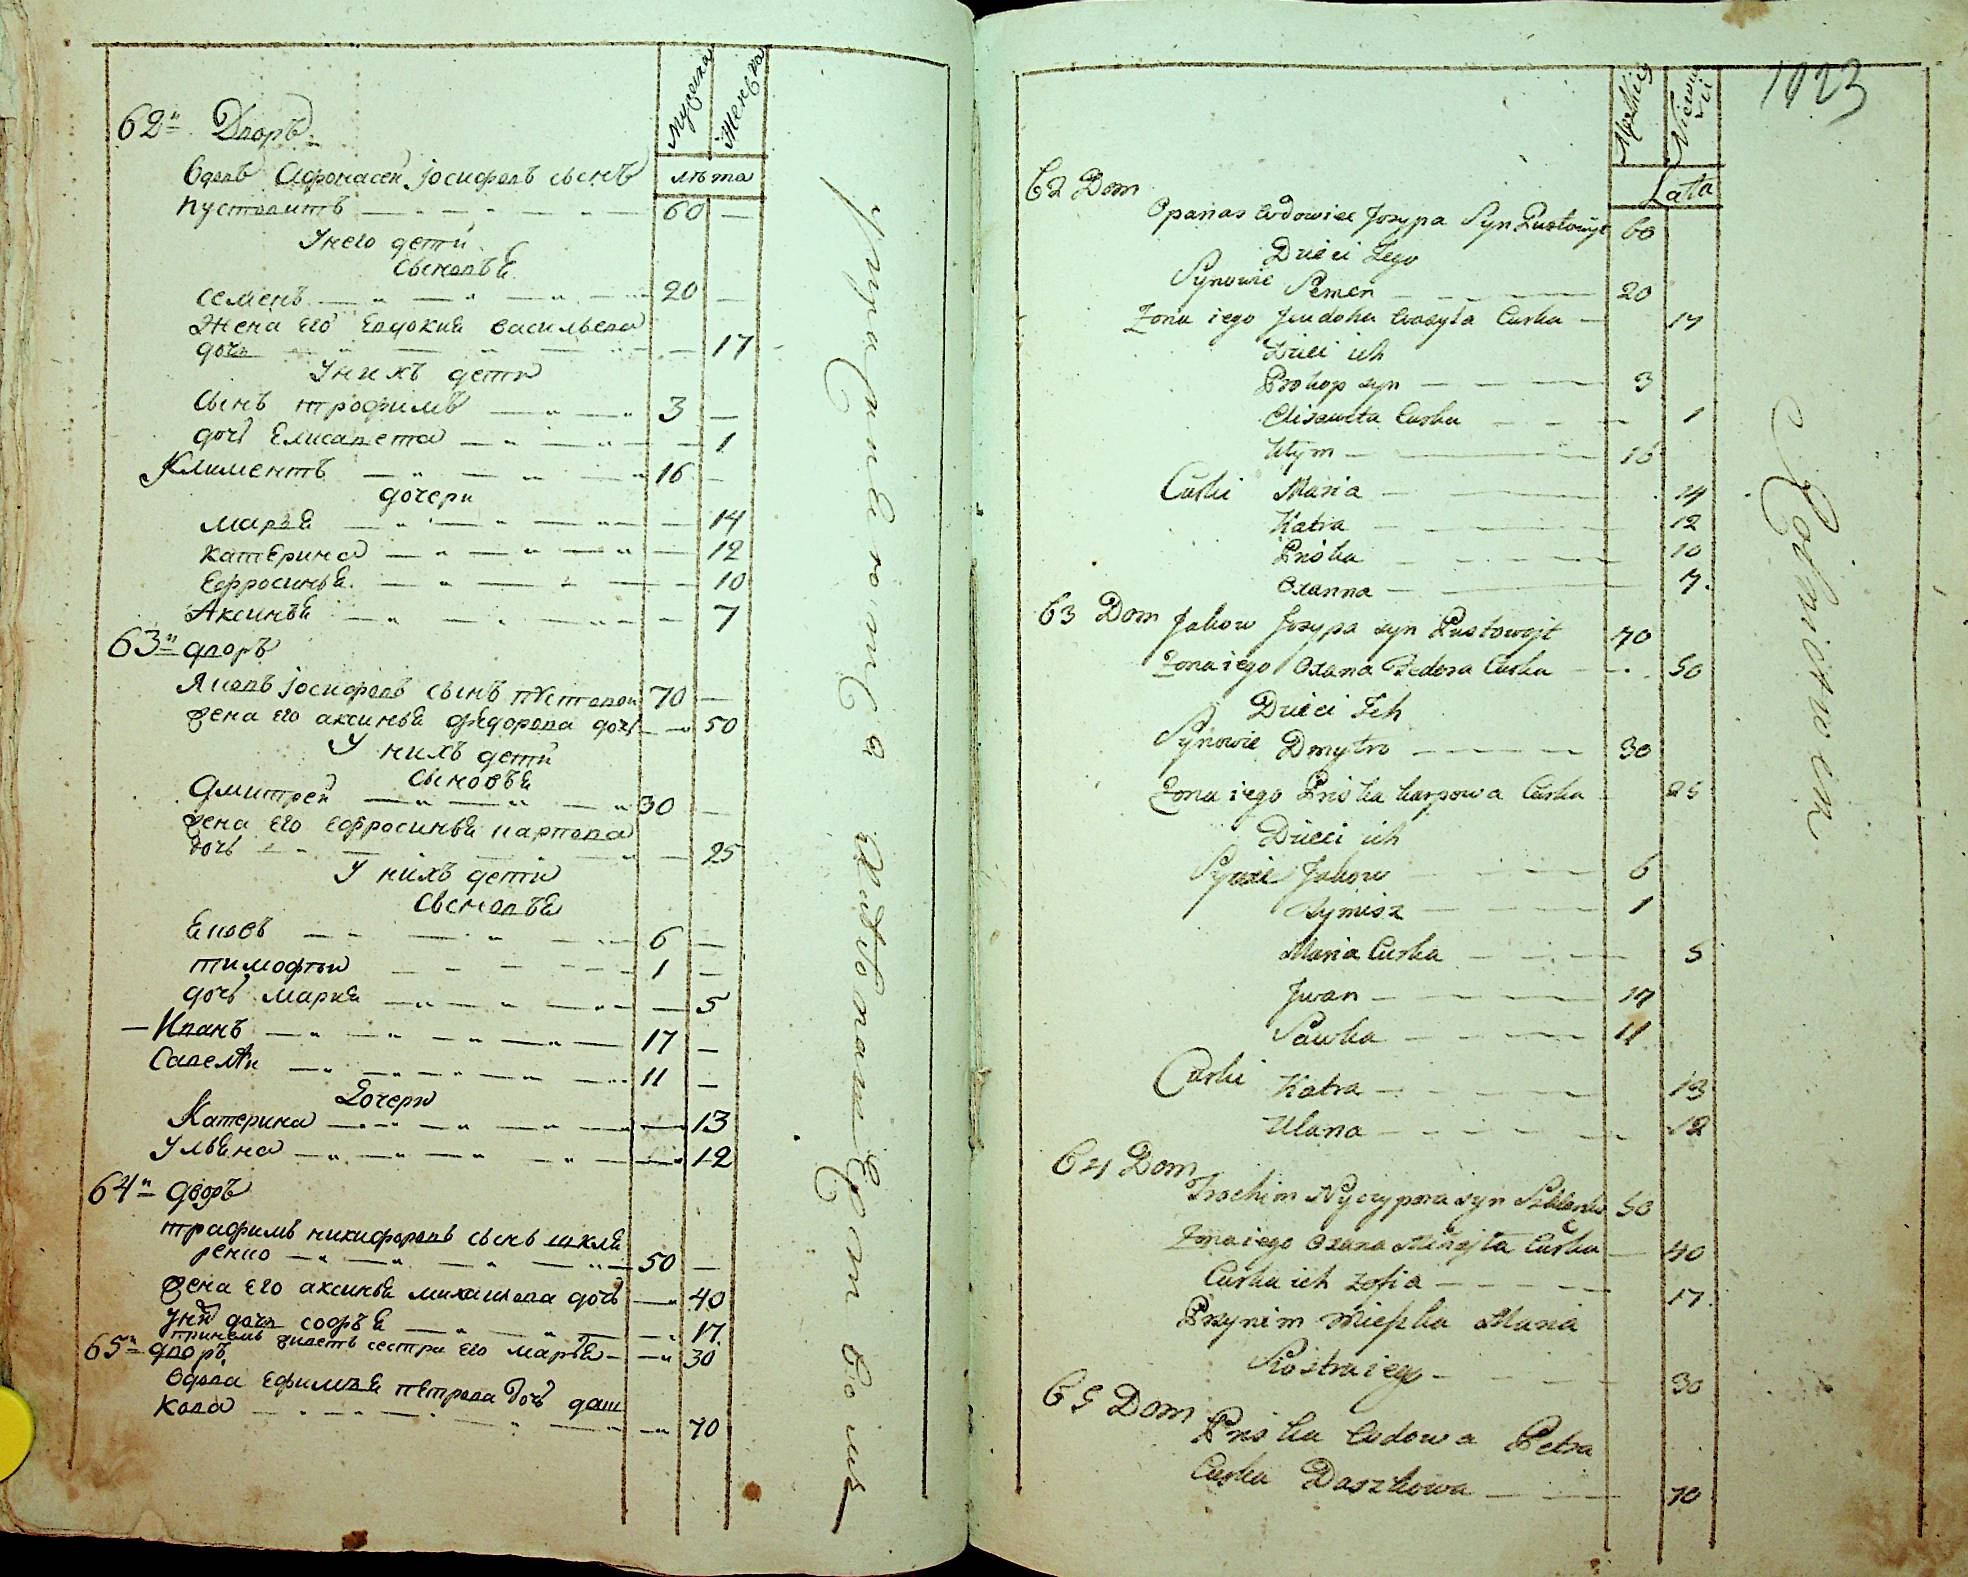 мужска
женска
62й Дворъ
лѣта
Вдовъ Афонасеи Іосифовъ сынъ
пустовитъ 60
У него дети
Сыновья
семенъ 20
Жена его Евдокия васильева
дочь 17
У нихъ дети
Сынъ трофимъ 3
дочь Елисавета 1
Климентъ 16
дочери
марья 14
катерина 12
Ефросинья 10
Аксинья 7
63й дворъ
Яковъ Іосифовъ сынъ пустовои 70
жена его аксинья федорова дочь 50
У нихъ дети
Сыновья
Дмитреи 30
жена его ефросинья карпова
дочь 25
У нихъ дети
Сыновья
Яковъ 6
тимофѣи 1
дочь мария 5
Иванъ 17
Савелѣи 11
Дочери
Катерина 13
Ульяна 12
64й дворъ
трафимъ никифоровъ сынъ шкля
ренко 50
жена его аксинья михаилова дочь 40
дочь софья 17
сестра его марья 30
65й дворъ
Вдова Ефимья петрова дочь даш
кова 70
1023
Lata
62 Dom
Opanas wdowiec Jozypa Syn Pustowyt 60
Dzieci Jego
Synowie Semen 20
Zona iego Jeudoha Wasyla Curka 17
Dzieci ich
Prokop syn 3
Elisaweta Curka 1
Klym 16
Curki Maria 14
Katra 12
Priśka 10
Oxanna 7
63 Dom Jakow Jozypa syn Pustowojt 70
Zona iego Oxana Fedora Curka 50
Dzieci Ich
Synowie Dmytro 30
Zona iego Priśka karpowa Curka 25
Dzieci ich
Jakow 6
Tymisz 1
Maria Curka 5
Jwan 17
Sawka 11
Curki Katra 13
Ulana 12
64 Dom
Trochim Nyczypora syn 50
Zona iego Oxana Curka 40
Curka ich Zofia 17
Przy nim Mieszka Maria
Siostra iego 30
65 Dom
Priśka Wdowa Petra
Curka Daszkowa 70